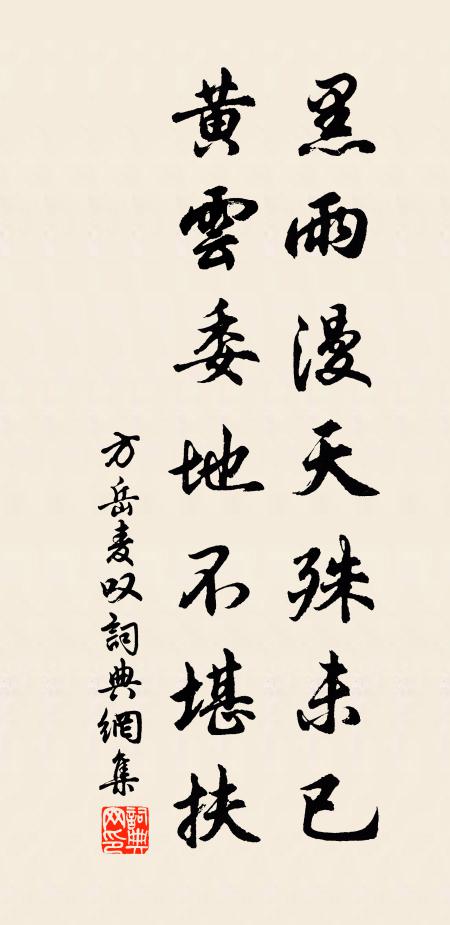 黑雨漫天殊未已
黄雲委地不堪扶
方岳麦叹詞典網集
詞典網印